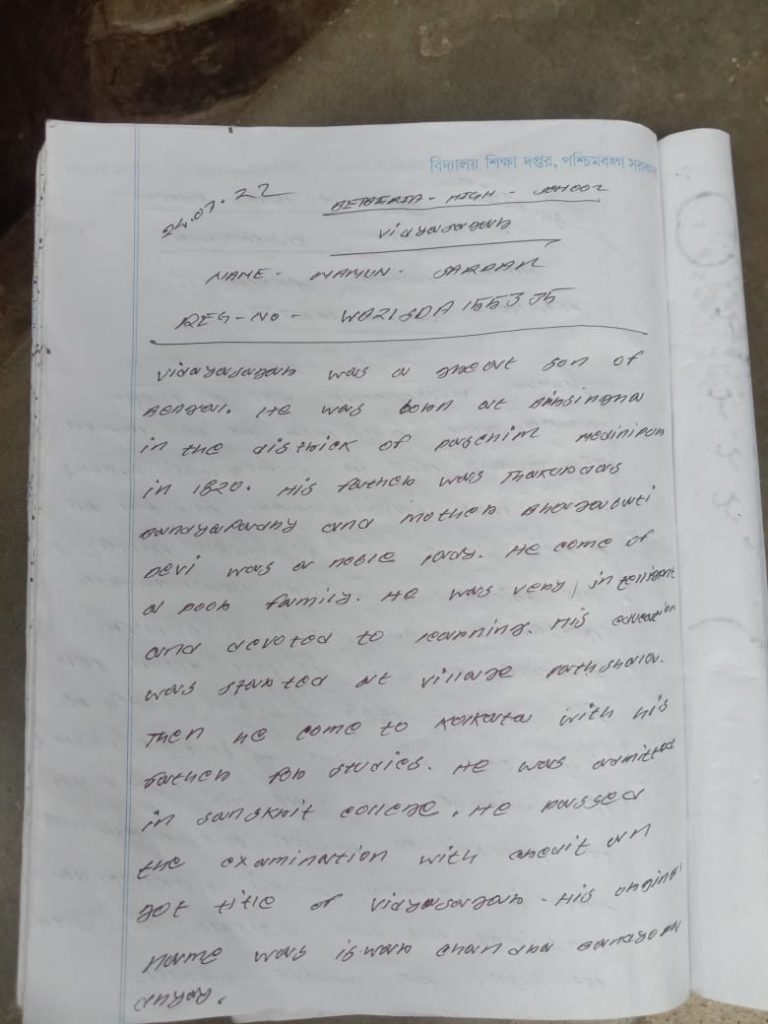 বিদ্যালয় শিক্ষা দপ্তর, পশ্চিমবঙ্গ সরকার
24.07.22
HIGH - SCHOOL
Vidyasagar
NAME - MAMUN - SARDAR
REG-NO -
Vidayasagar was a great son of
Bengal. He was born at Birsingha
in the districk of paschim medinipor
in 1820. His father was Thakurdas
and mother Bhagabati
Devi was a noble lady. He come of
a poor family. He was very, intelligent
and devoted to learning. His education
was started at village pathshala.
Then he come to Kolkata with his
father for studies. He was admitted
in sanskrit college. He passed
the examination with credit an
got title of Vidyasagar - His original
name was iswar chandra